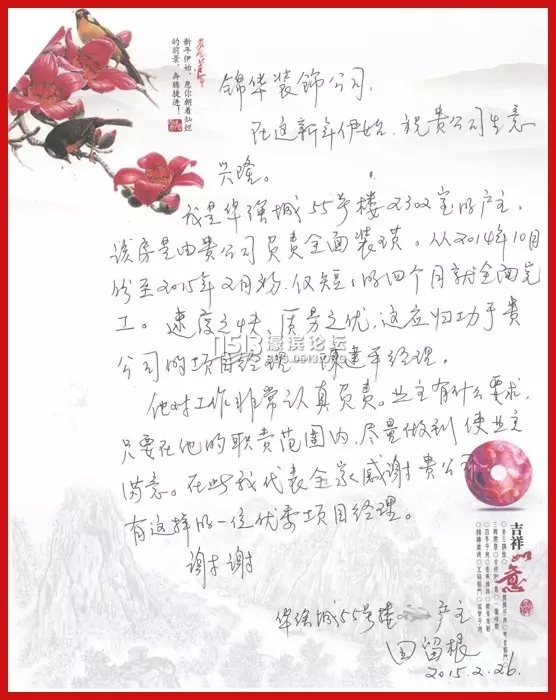 新年伊始,愿你朝着灿烂
的前景,奔腾捷进!
锦华装饰公司,
在这新年伊始,祝贵公司生意
兴隆。
我是华强城55号楼2302室的产主,
该房是由贵公司负责全面装璜。从2014年10月
份至2015年2月初,仅短短的四个月就全面完
工。速度之快,质量之优,这应归功于贵
公司的项目经理 陈建平经理。
他对工作非常认真负责。业主有什么要求,
只要在他的职责范围内,尽量做到使业主
满意。在此我代表全家感谢贵公司
有这样的一位优秀项目经理。
谢谢
华强城55号楼 产主
田留根
2015.2.26.
0513 濠滨论坛
BBS.0513.ORG
吉祥如意